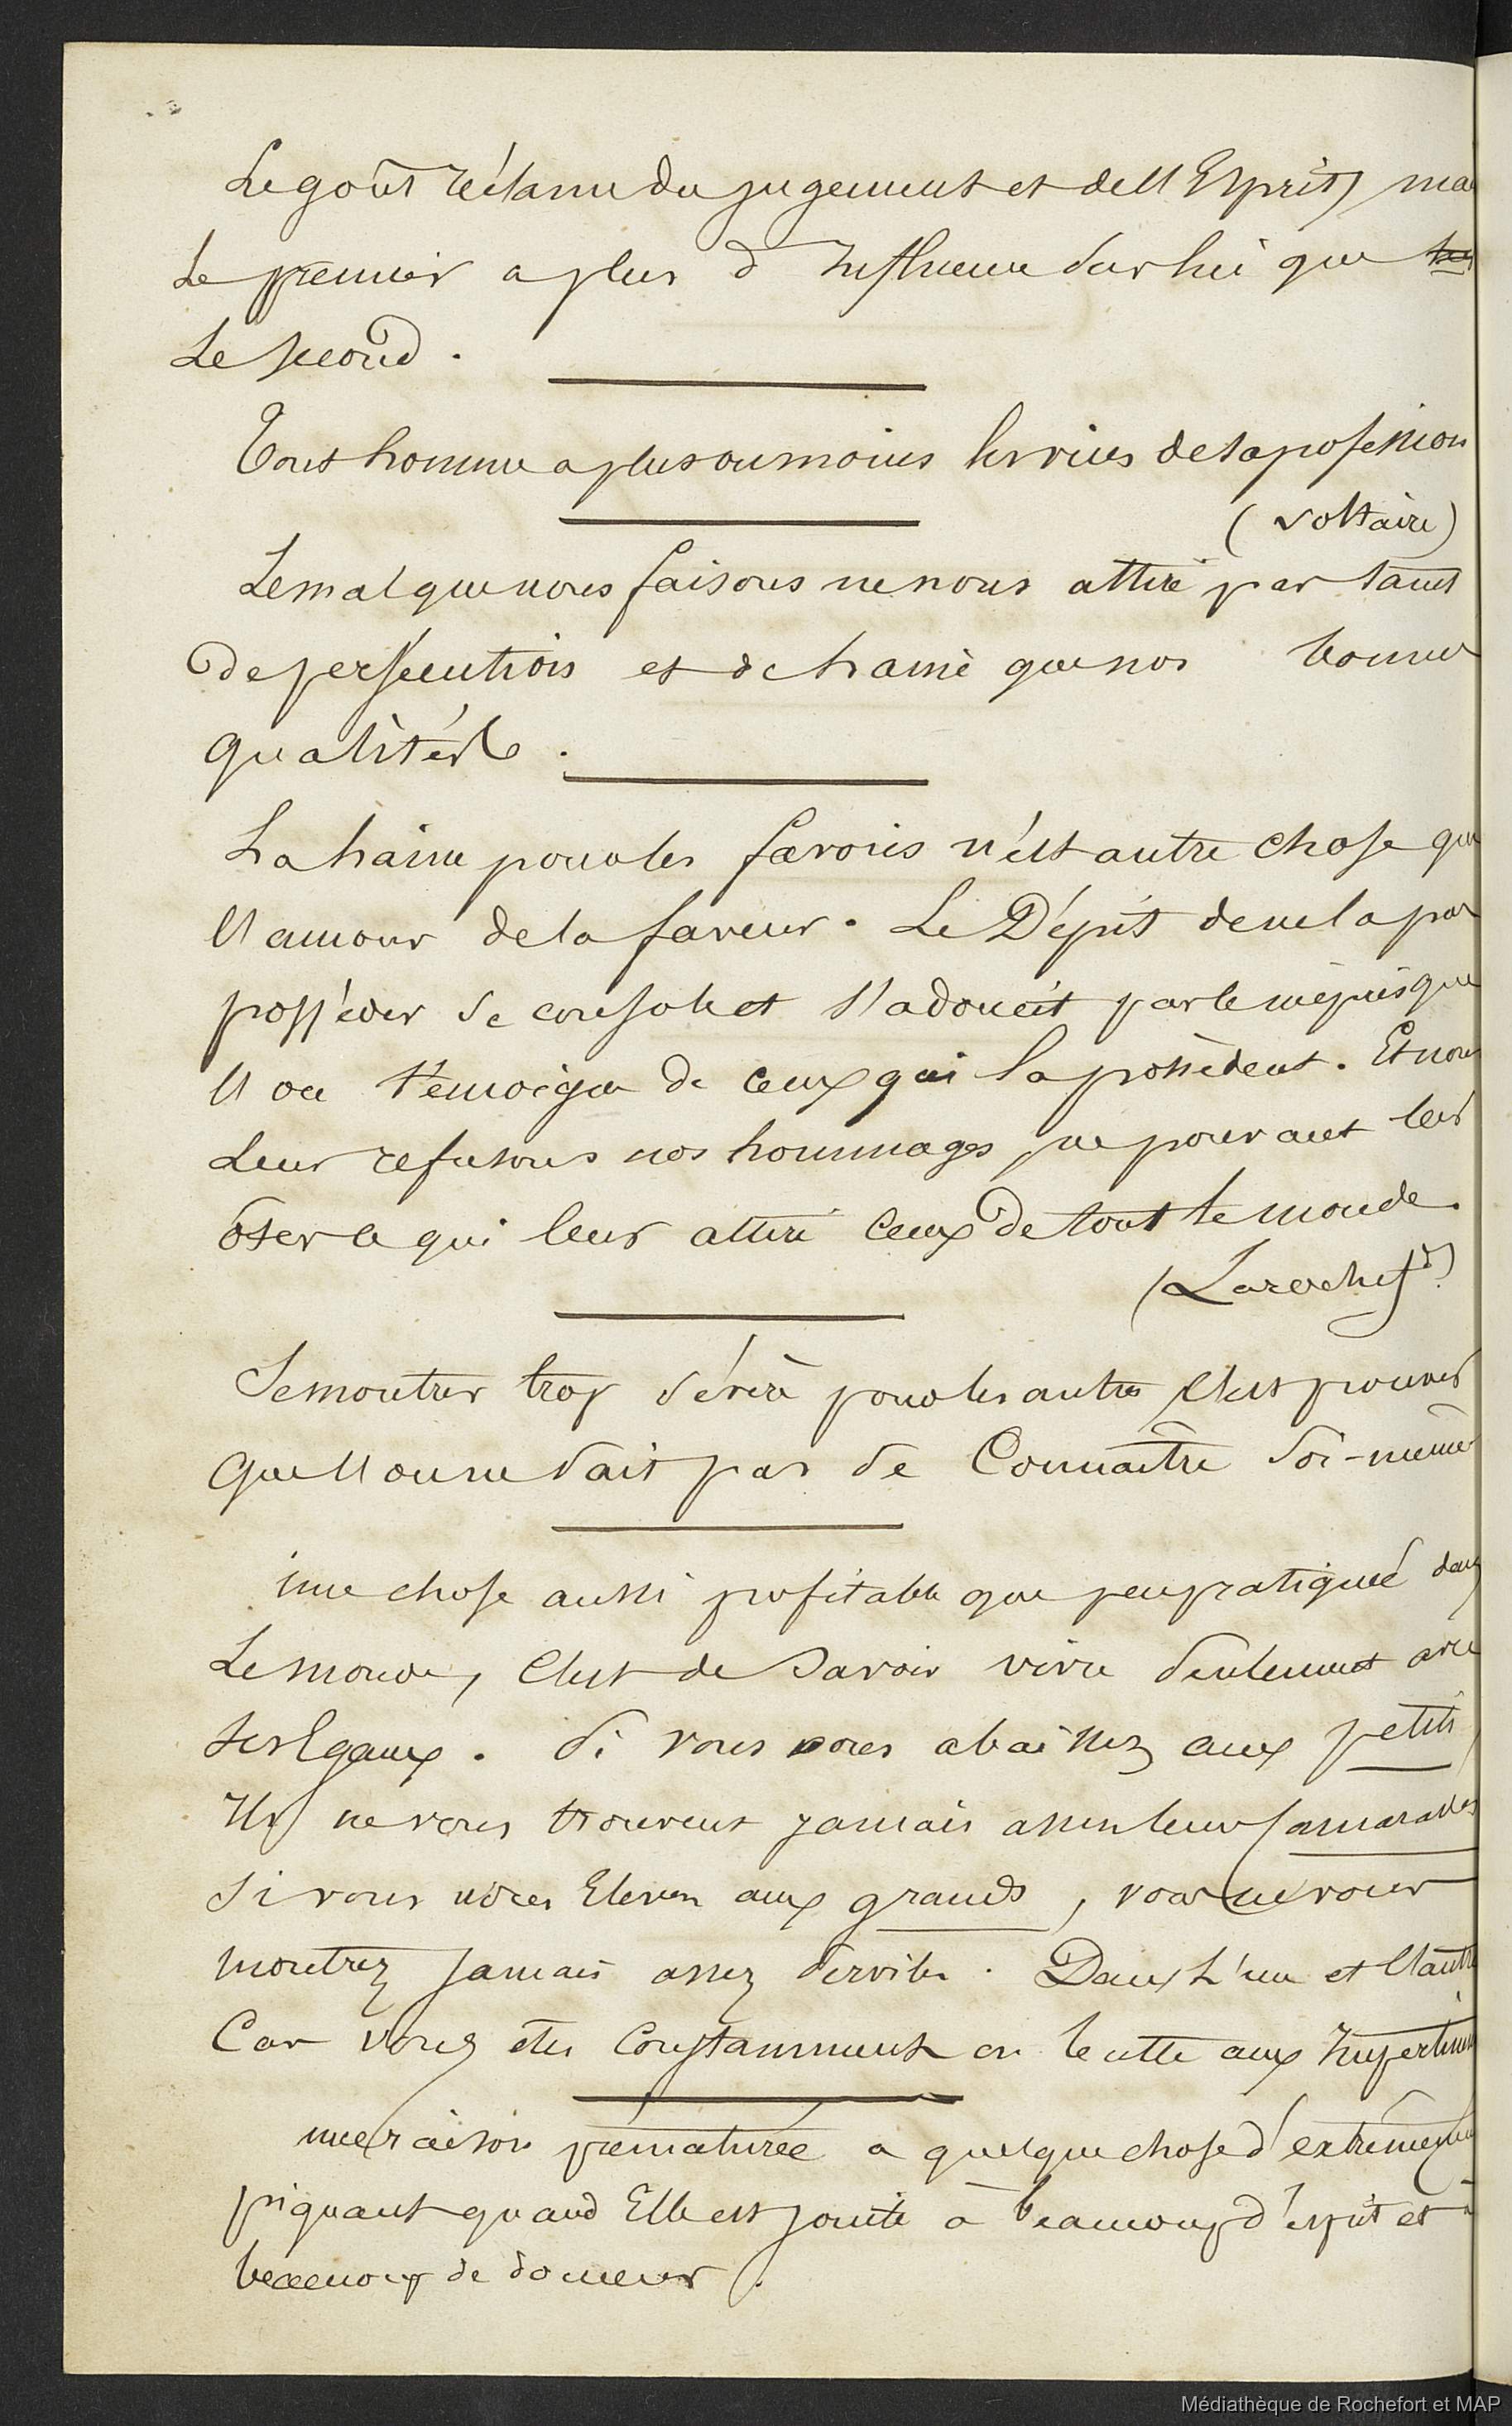 Le goût réclame du jugement et de l'Esprit, mais
Le premier a plus d'Influence sur lui que
Le second.
Tout homme a plus ou moins les vices de sa profession
(Voltaire)
Le mal que nous faisons ne nous attire pas tant
de persécutions et de haine que nos bonnes
qualités.
La haine pour les favoris n'est autre chose que
l'amour de la faveur. Le Dépit de ne la pas
posséder se console et s'adoucit par le mépris que
l'on témoigne de ceux qui la possèdent. Et nous
Leur refusons nos hommages, ne pouvant leur
ôter ce qui leur attire ceux de tout le monde.
(Larochefd)
Se montrer trop sévère pour les autres c'est prouver
que l'on ne sait pas se Connaître soi-même
une chose aussi profitable que peu pratiquée dans
Le monde, c'est de savoir vivre seulement avec
ses Egaux. Si vous vous abaissez aux petits,
Ils ne vous trouvent jamais assez leur Camarades
Si vous vous Elevez aux grands, vous ne vous
montrez jamais assez serviles. Dans L'un et l'autre
Cas vous êtes Constamment en butte aux
une raison prématurée a quelque chose d'extrêmement
piquant quand Elle est jointe à beaucoup d'esprit et à
beaucoup de douceur.
Médiathèque de Rochefort et MAP